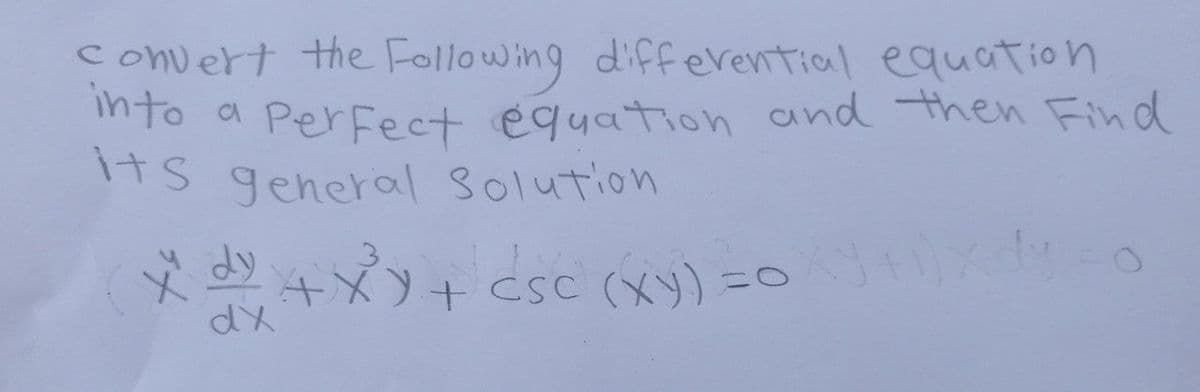 convert the Following differential equation
into a PerFect equation and then Find
its general Solution
x⁴ dy/dx + x³y + csc (xy) = 0